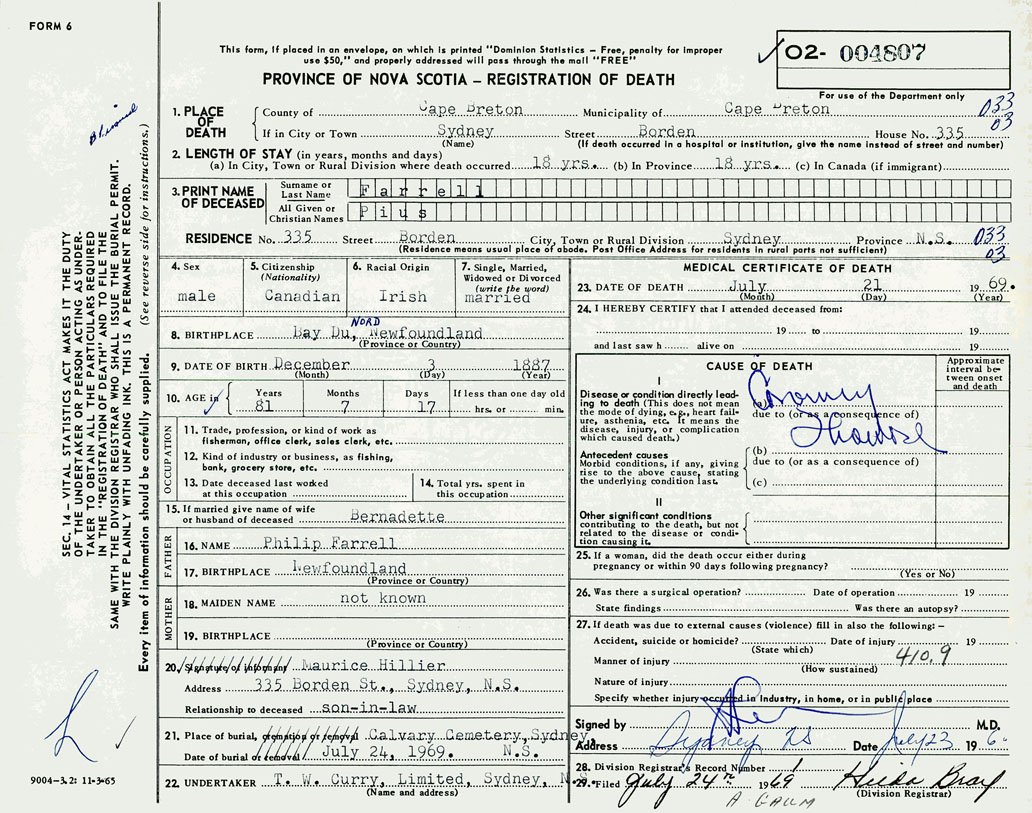 FORM 6
This form, if placed in an envelope, on which is printed "Dominion Statistics – Free, penalty for improper
use $50," and properly addressed will pass through the mail "FREE"
PROVINCE OF NOVA SCOTIA – REGISTRATION OF DEATH
✓ 02- 004807
For use of the Department only
1. PLACE OF DEATH { County of Cape Breton Municipality of Cape Breton 033
If in City or Town Sydney Street Borden House No. 335 03
(Name) (If death occurred in a hospital or institution, give the name instead of street and number)
2. LENGTH OF STAY (in years, months and days)
(a) In City, Town or Rural Division where death occurred 18 yrs. (b) In Province 18 yrs. (c) In Canada (if immigrant)
3. PRINT NAME OF DECEASED { Surname or Last Name Farrell
All Given or Christian Names Pius
RESIDENCE No. 335 Street Borden City, Town or Rural Division Sydney Province N.S. 033
(Residence means usual place of abode. Post Office Address for residents in rural parts not sufficient) 03
4. Sex
male
5. Citizenship
(Nationality)
Canadian
6. Racial Origin
Irish
7. Single, Married,
Widowed or Divorced
(write the word)
married
NORD
8. BIRTHPLACE Bay Du, Newfoundland
(Province or Country)
9. DATE OF BIRTH December 3 1887
(Month) (Day) (Year)
10. AGE in { Years Months Days If less than one day old
✓ 81 7 17 hrs. or min.
OCCUPATION
11. Trade, profession, or kind of work as
fisherman, office clerk, sales clerk, etc.
12. Kind of industry or business, as fishing,
bank, grocery store, etc.
13. Date deceased last worked
at this occupation
14. Total yrs. spent in
this occupation
15. If married give name of wife
or husband of deceased Bernadette
FATHER
16. NAME Philip Farrell
17. BIRTHPLACE Newfoundland
(Province or Country)
MOTHER
18. MAIDEN NAME not known
19. BIRTHPLACE
(Province or Country)
20. Signature of informant Maurice Hillier
Address 335 Borden St., Sydney, N.S.
Relationship to deceased son-in-law
21. Place of burial, cremation or removal Calvary Cemetery, Sydney,
Date of burial or removal July 24, 1969. N.S.
22. UNDERTAKER T. W. Curry, Limited, Sydney, N.S.
(Name and address)
MEDICAL CERTIFICATE OF DEATH
23. DATE OF DEATH July 21 1969.
(Month) (Day) (Year)
24. I HEREBY CERTIFY that I attended deceased from:
19 to 19
and last saw h alive on 19
CAUSE OF DEATH
Approximate
interval be-
tween onset
and death
I
Disease or condition directly lead-
ing to death (This does not mean
the mode of dying, e.g., heart fail-
ure, asthenia, etc. It means the
disease, injury, or complication
which caused death.)
(a) Coronary
due to (or as a consequence of)
Antecedent causes
Morbid conditions, if any, giving
rise to the above cause, stating
the underlying condition last.
(b)
due to (or as a consequence of)
(c)
II
Other significant conditions
contributing to the death, but not
related to the disease or condi-
tion causing it.
25. If a woman, did the death occur either during
pregnancy or within 90 days following pregnancy?
(Yes or No)
26. Was there a surgical operation? Date of operation 19
State findings Was there an autopsy?
27. If death was due to external causes (violence) fill in also the following: –
Accident, suicide or homicide? Date of injury 19
(State which)
Manner of injury 410.9
(How sustained)
Nature of injury
Specify whether injury occurred in Industry, in home, or in public place
Signed by M.D.
Address Sydney NS Date July 23 196
28. Division Registrar's Record Number
29. Filed July 24th 1969
(Division Registrar)
A GAUM
SEC. 14 – VITAL STATISTICS ACT MAKES IT THE DUTY
OF THE UNDERTAKER OR PERSON ACTING AS UNDER-
TAKER TO OBTAIN ALL THE PARTICULARS REQUIRED
IN THE "REGISTRATION OF DEATH" AND TO FILE THE
SAME WITH THE DIVISION REGISTRAR WHO SHALL ISSUE THE BURIAL PERMIT.
WRITE PLAINLY WITH UNFADING INK. THIS IS A PERMANENT RECORD.
Every item of information should be carefully supplied. (See reverse side for instructions.)
9004-3.2: 11-3-65